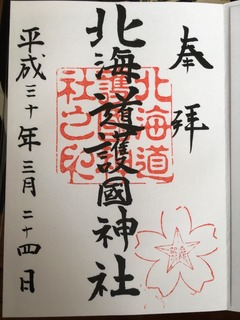 奉拜
北海道護國神社
北海道
護國神
社之印
平成三十年三月二十四日